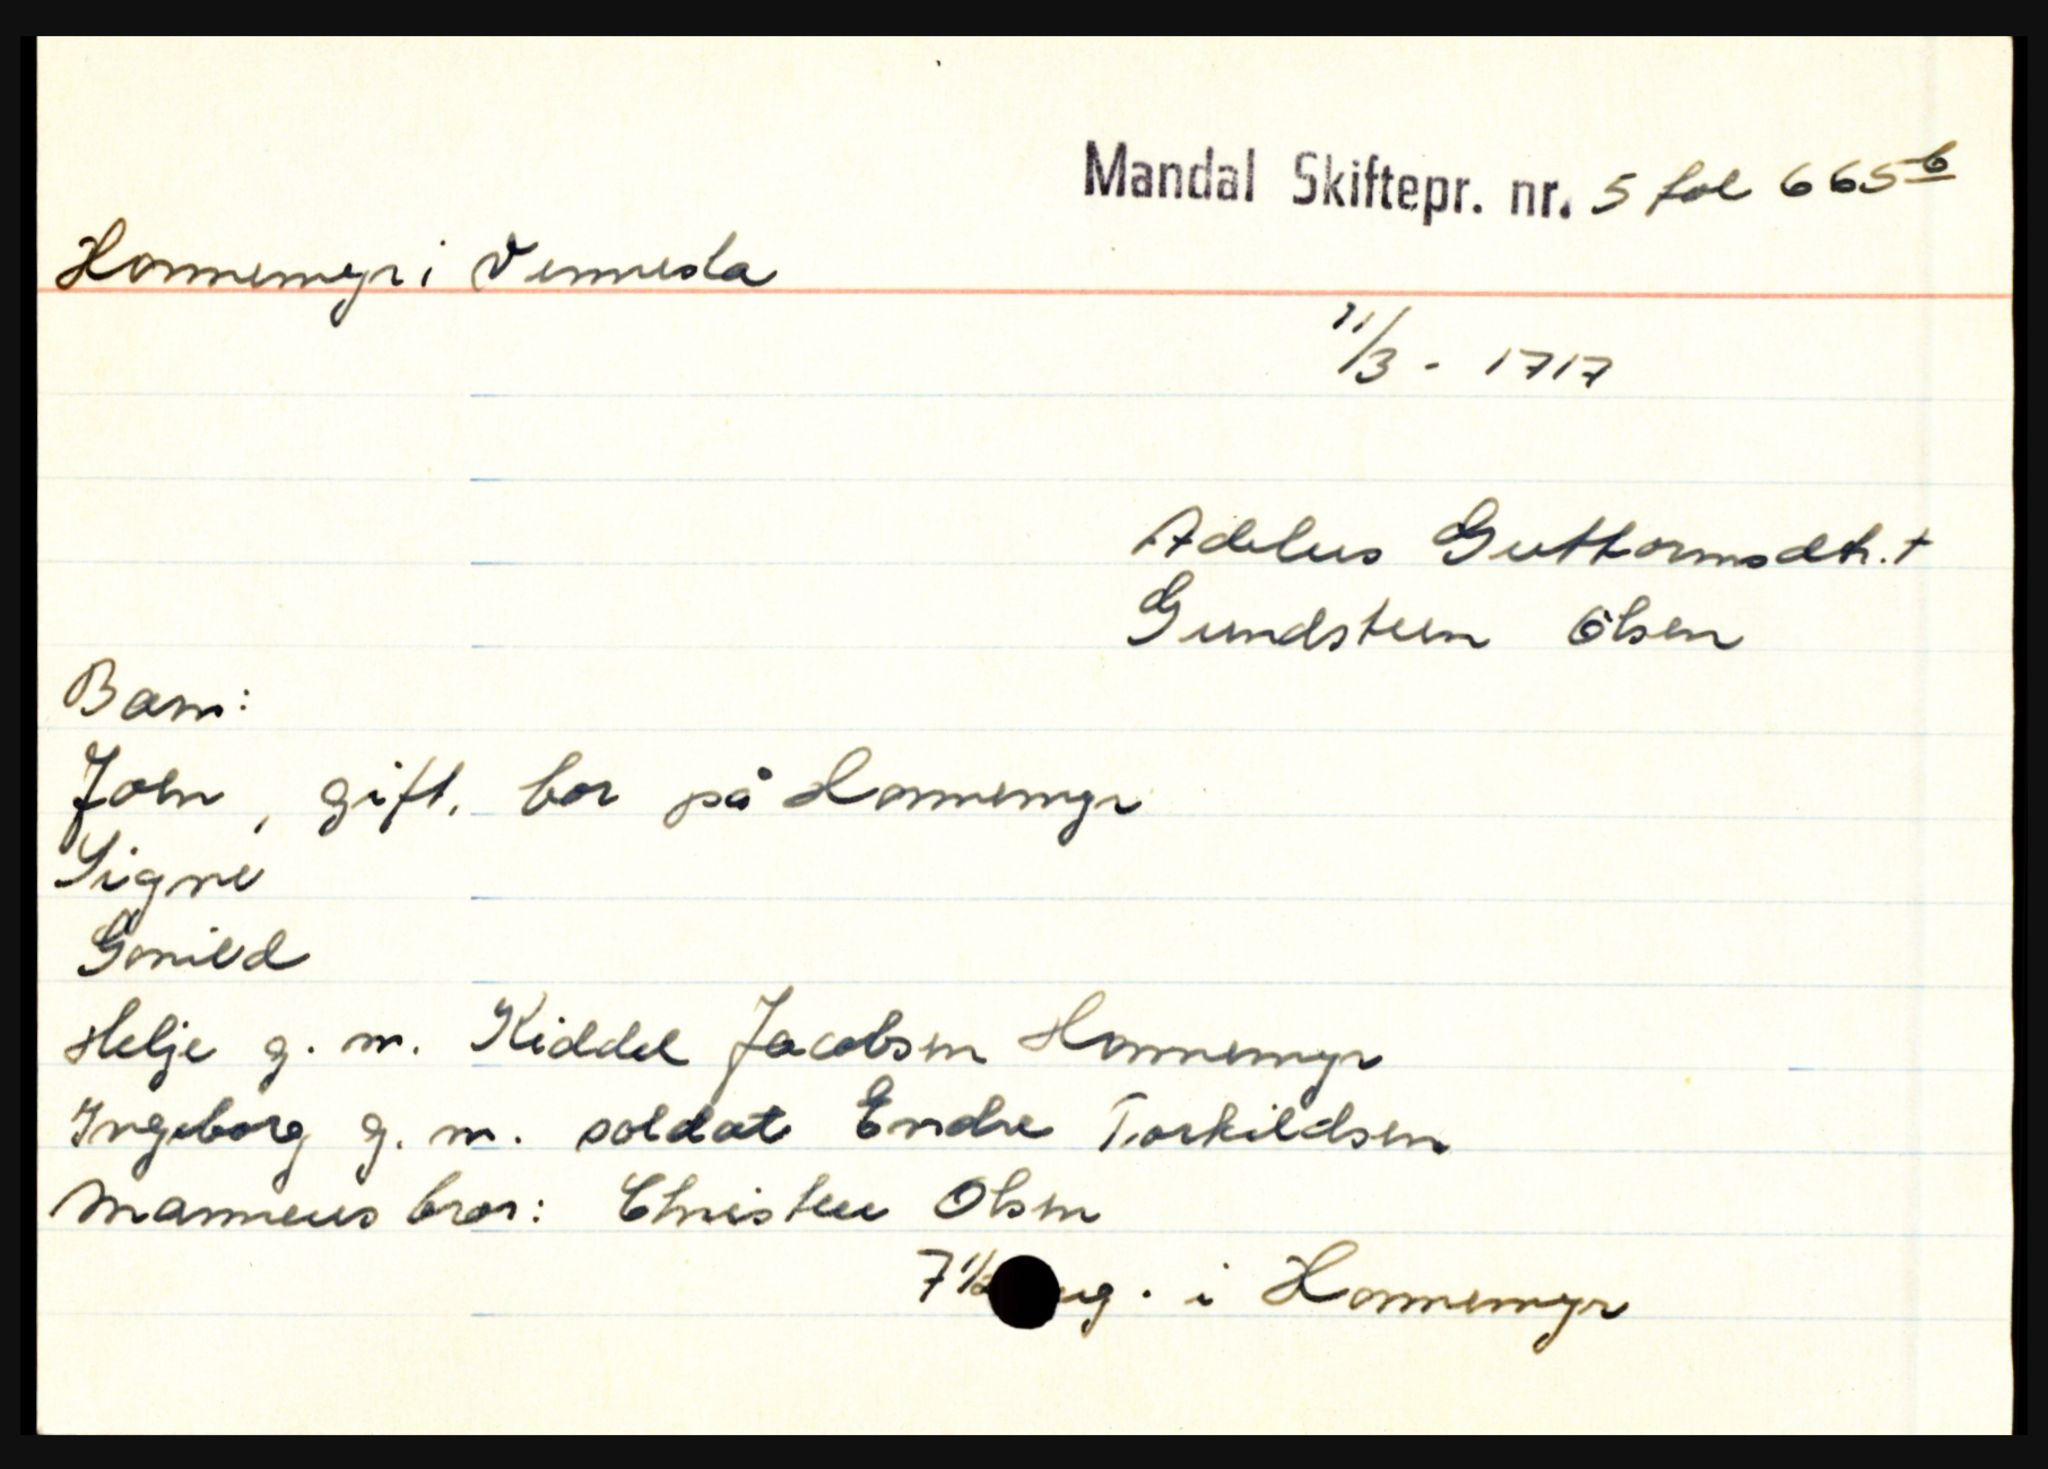 Mandal Skiftepr. nr. 5 fol 665 b
Honnemyr i Vennesla
11/3 - 1717
Adelus Guttormsdtr. +
Gundsteen Olsen
Barn:
John, gift, bor på Honnemyr
Signe
Gonild
Helje g. m. Kiddel Jacobsen Honnemyr
Ingeborg g. m. soldat Endre Torkildsen
Mannens bror: Christen Olsen
7 1/2 ug. i Honnemyr